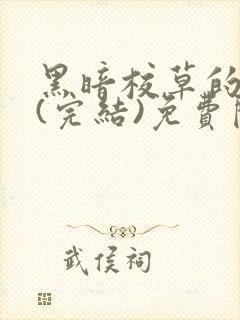 黑暗校草的
(完結)免費
武侯祠